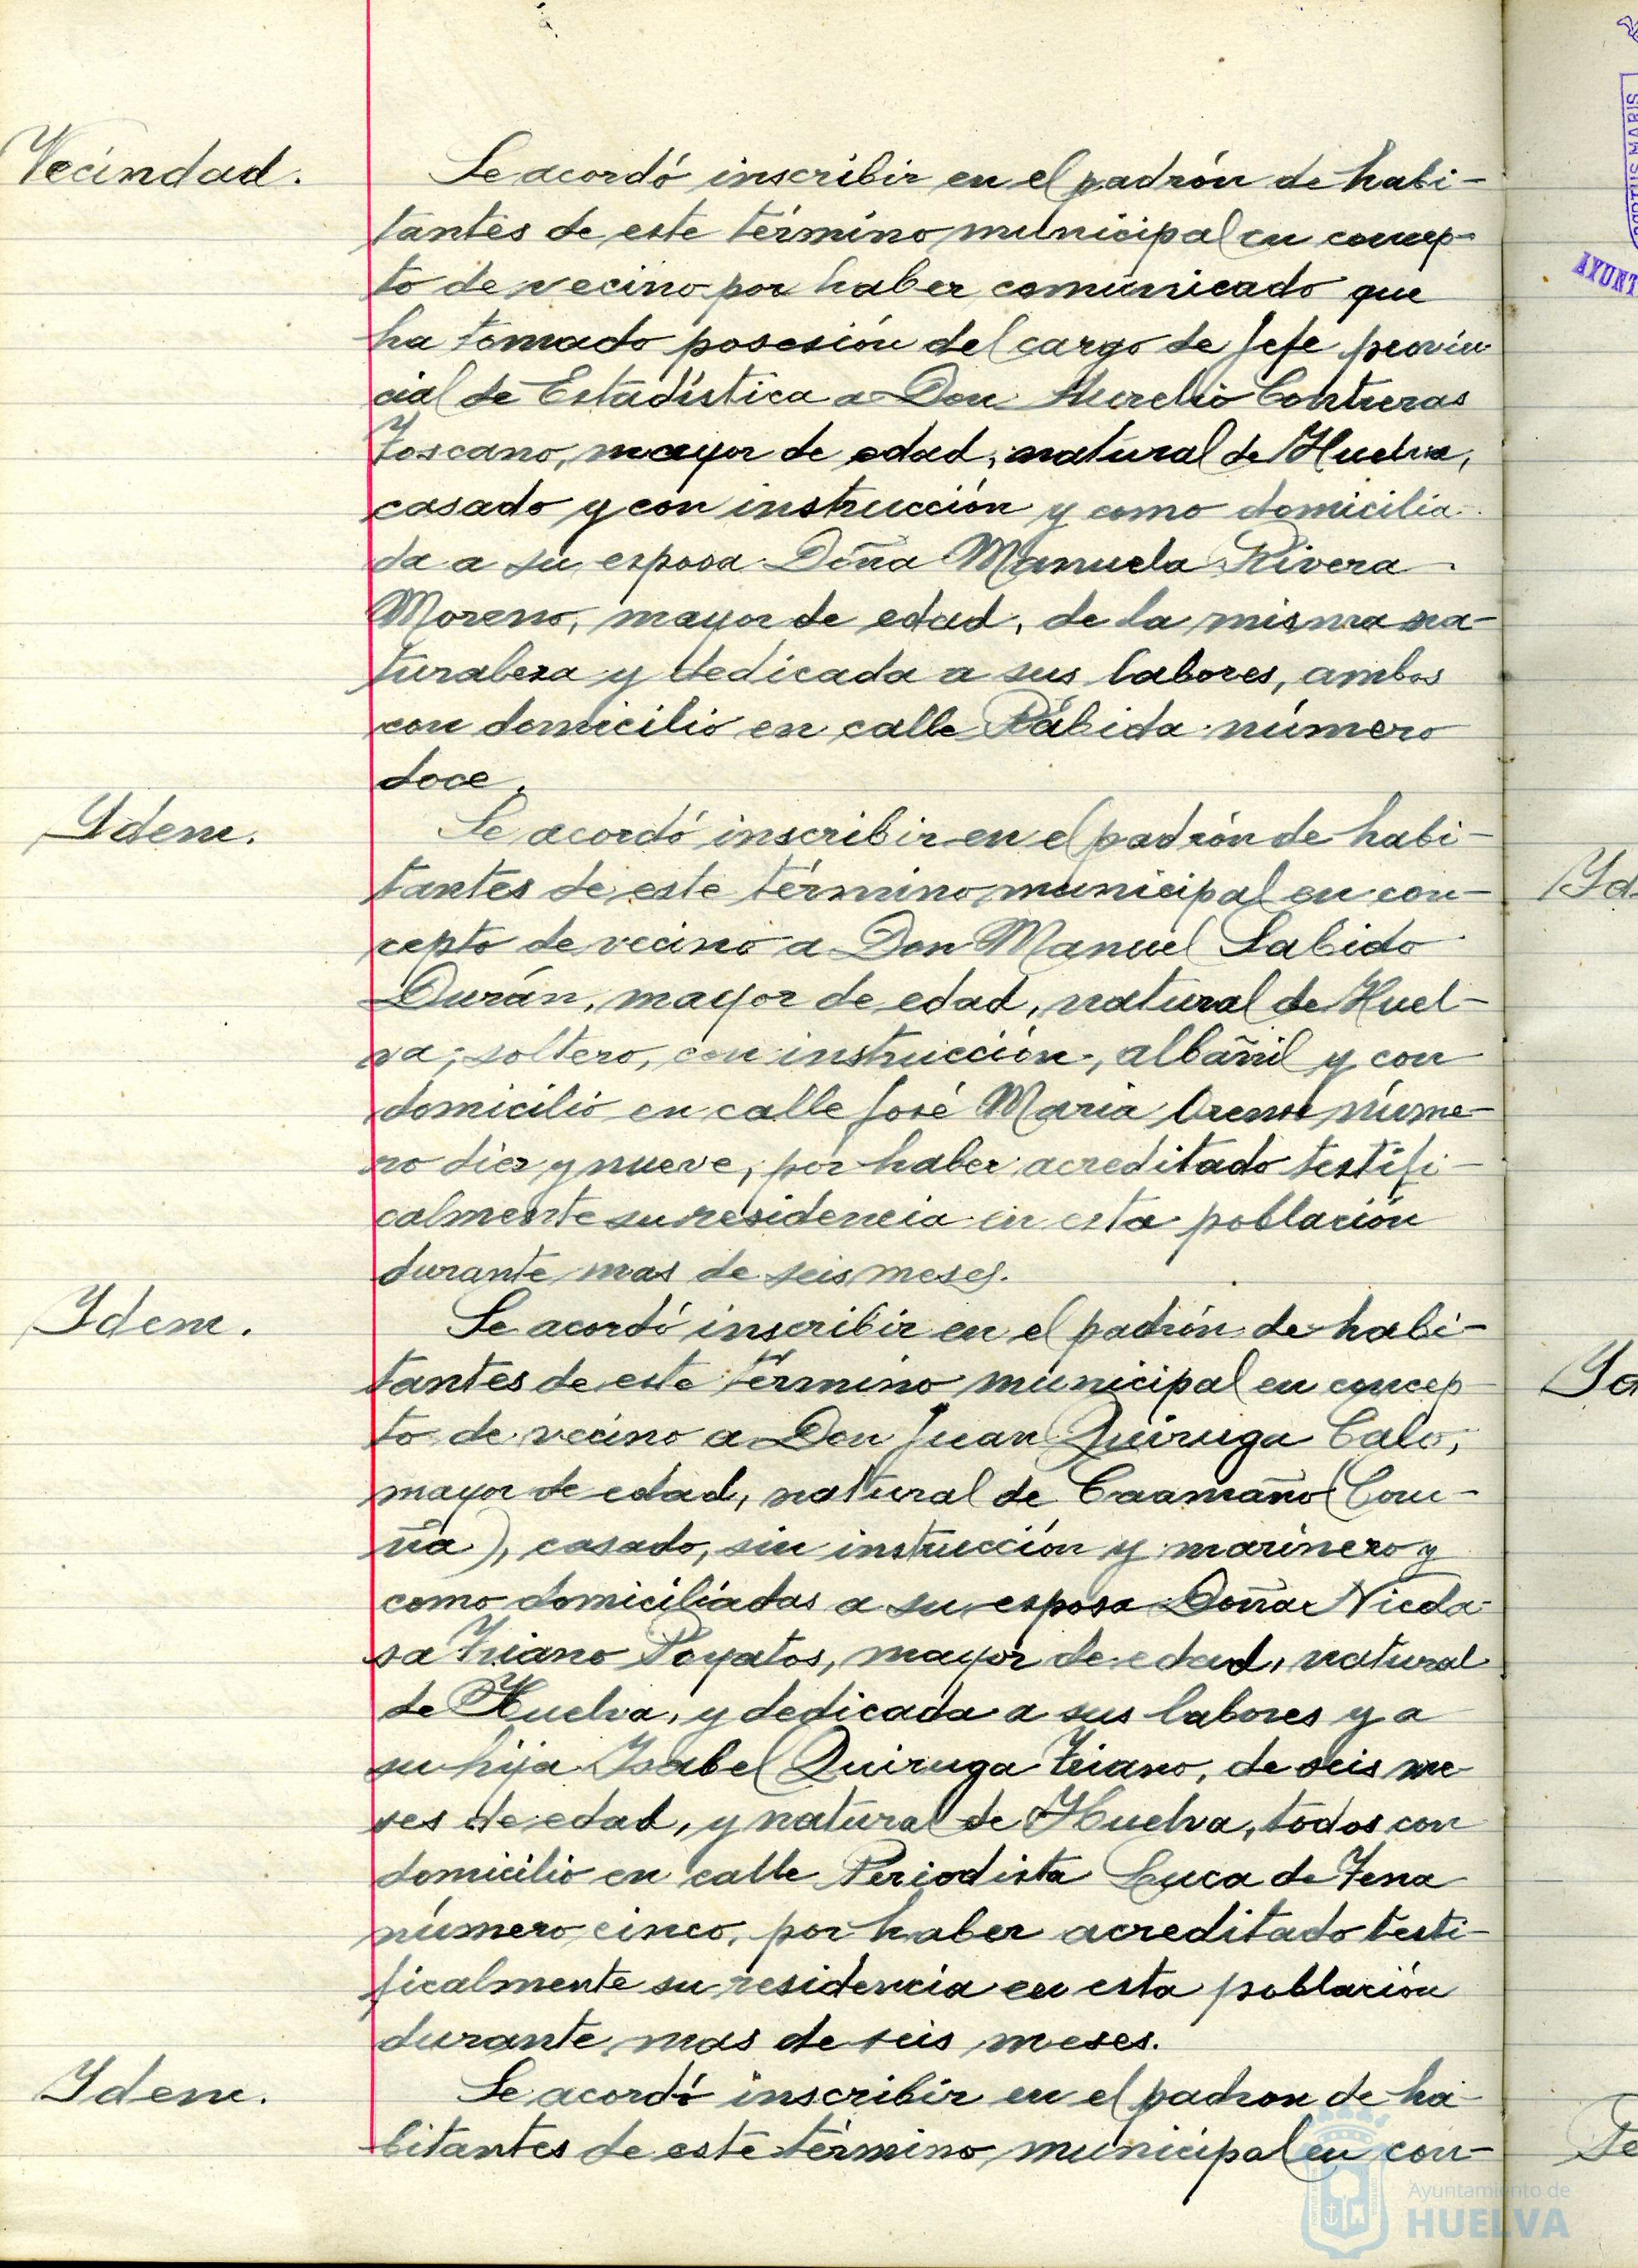 Vecindad.
Se acordó inscribir en el padrón de habi-
tantes de este término municipal en concep-
to de vecino por haber comunicado que
ha tomado posesión del cargo de Jefe provin-
cial de Estadística a Don Aurelio Contreras
Toscano, mayor de edad, natural de Huelva,
casado y con instrucción y como domicilia-
da a su esposa Doña Manuela Rivera
Moreno, mayor de edad, de la misma na-
turaleza y dedicada a sus labores, ambos
con domicilio en calle Rábida número
doce.
Ydem.
Se acordó inscribir en el padrón de habi-
tantes de este término municipal en con-
cepto de vecino a Don Manuel Sabido
Durán, mayor de edad, natural de Huel-
va, soltero, con instrucción, albañil y con
domicilio en calle José Maria Orense núme-
ro diez y nueve, por haber acreditado testifi-
calmente su residencia en esta población
durante mas de seis meses.
Ydem.
Se acordó inscribir en el padrón de habi-
tantes de este término municipal en concep
to de vecino a Don Juan Quiruga Calo,
mayor de edad, natural de Caamaño (Coru-
ña), casado, sin instrucción y marinero y
como domiciliadas a su esposa Doña
Triano Poyatos, mayor de edad, natural
de Huelva, y dedicada a sus labores y a
su hija Ysabel Quiruga Triano, de seis me-
ses de edad, y natural de Huelva, todos con
domicilio en calle Periodista Luca de Tena
número cinco, por haber acreditado testi-
ficalmente su residencia en esta población
durante mas de seis meses.
Ydem.
Se acordó inscribir en el padron de ha-
bitantes de este término municipal en con-
Ayuntamiento de
HUELVA